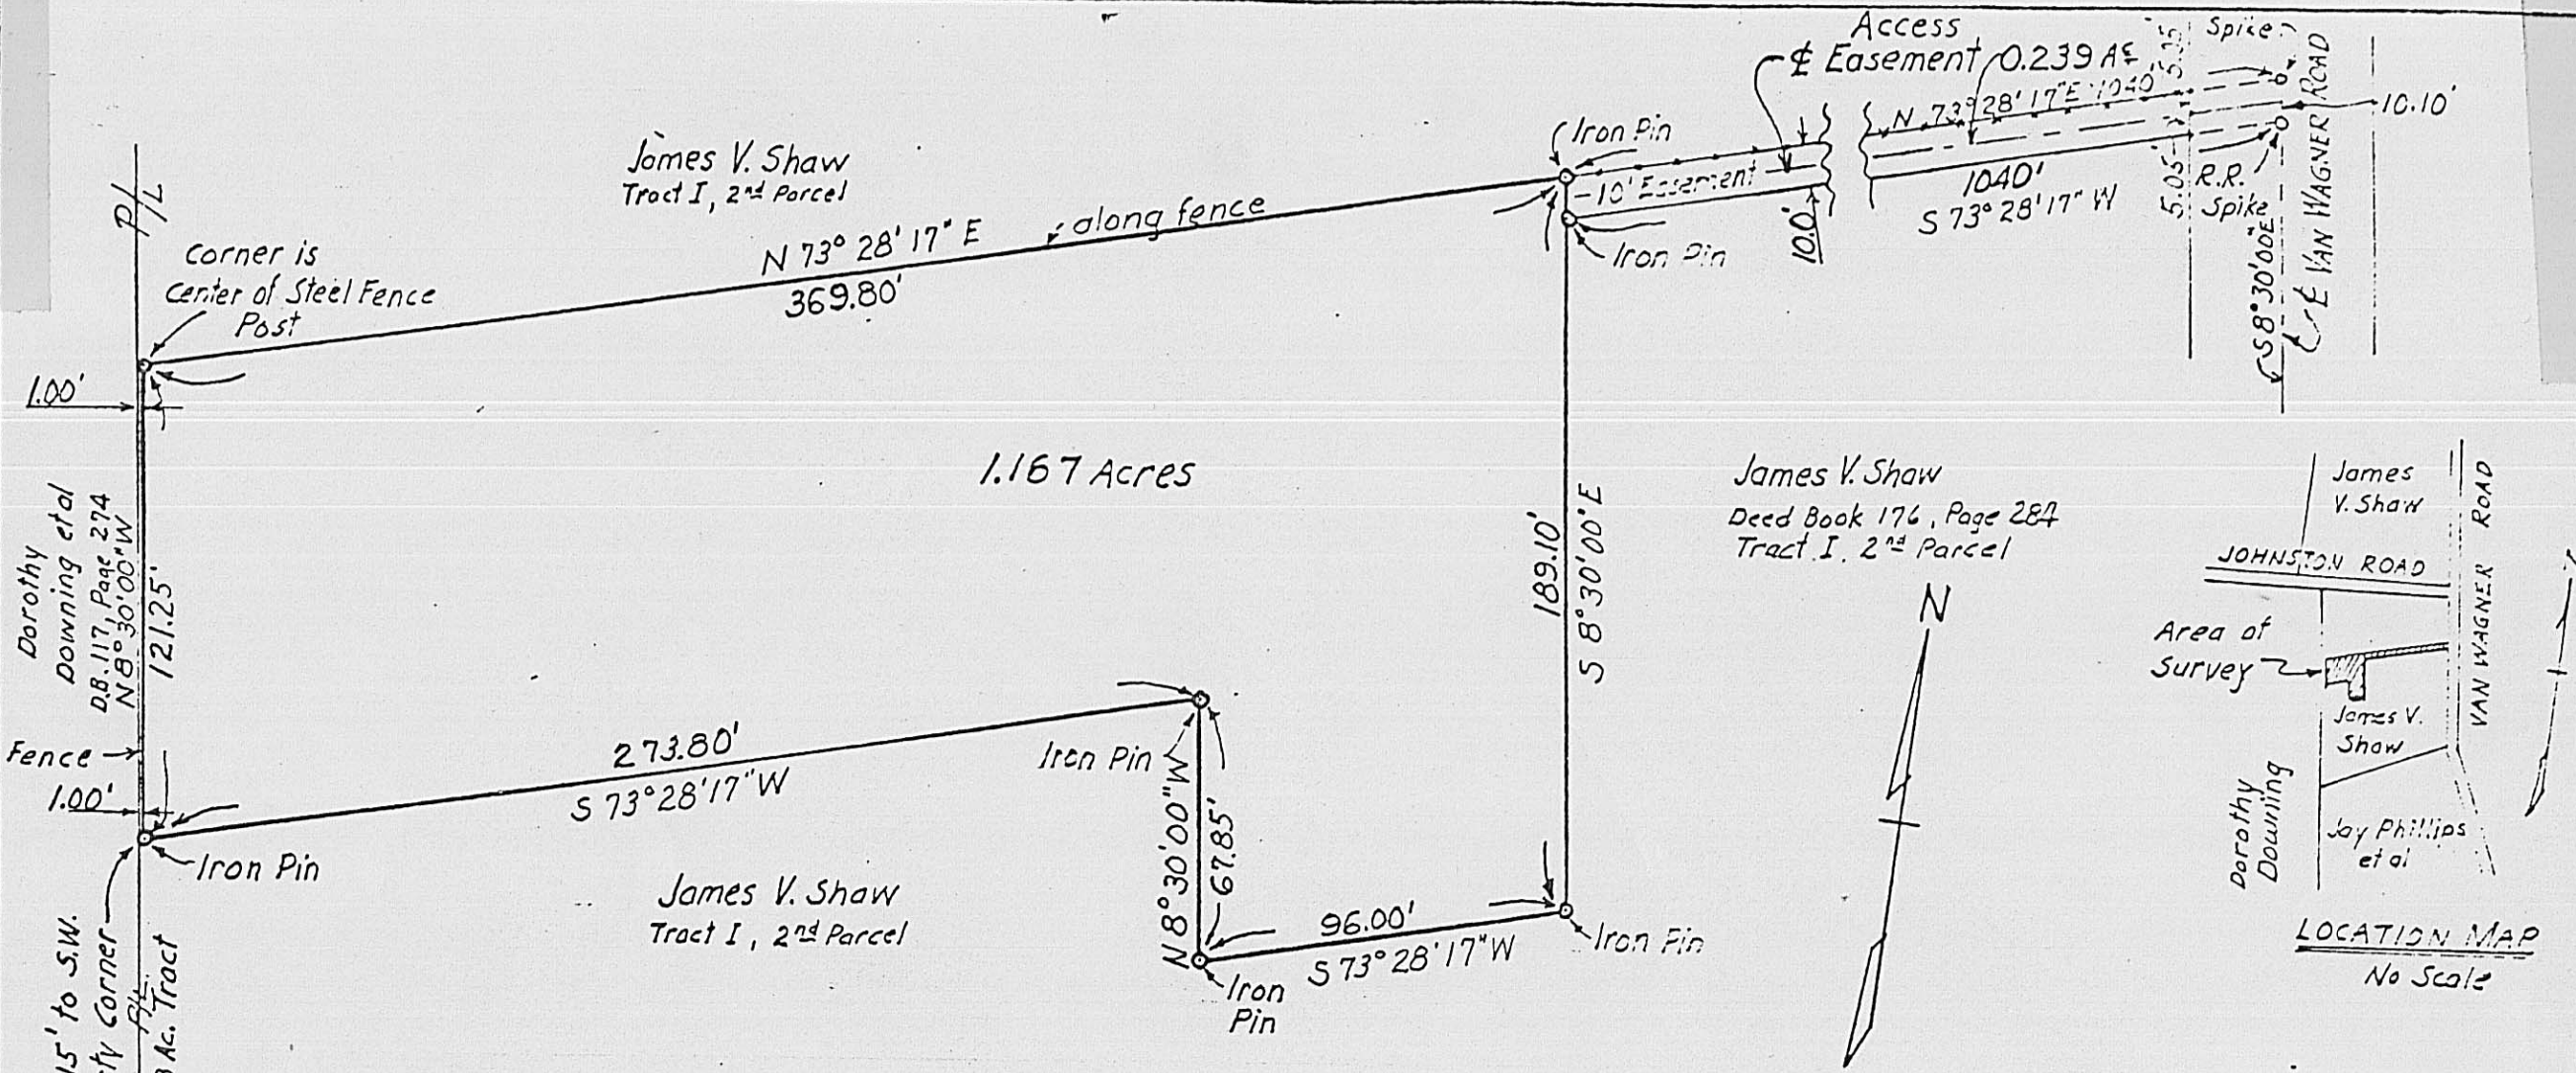 Access
₵ Easement
0.239 Ac
5.05'
Spike
N 73°28'17"E 1040'
10.10'
VAN WAGNER ROAD
Iron Pin
10' Easement
1040'
S 73°28'17" W
10.0'
Iron Pin
5.05'
R.R.
Spike
S 8°30'00"E
₵ VAN WAGNER ROAD
P/L
James V. Shaw
Tract I, 2nd Parcel
N 73° 28' 17" E
along fence
369.80'
Corner is
Center of Steel Fence
Post
1.00'
1.167 Acres
Dorothy
Downing et al
D.B. 117, Page 274
N 8° 30' 00" W
121.25'
189.10'
S 8° 30' 00" E
James V. Shaw
Deed Book 176, Page 284
Tract I, 2nd Parcel
N
Fence
1.00'
Iron Pin
273.80'
S 73° 28' 17" W
Iron Pin
N 8° 30' 00" W
67.85'
James V. Shaw
Tract I, 2nd Parcel
96.00'
S 73° 28' 17" W
Iron Pin
Iron
Pin
15' to S.W.
ty Corner
P/L
Ac. Tract
James
V. Shaw
JOHNSTON ROAD
VAN WAGNER ROAD
Area of
Survey
James V.
Shaw
Dorothy
Downing
Jay Phillips
et al
LOCATION MAP
No Scale